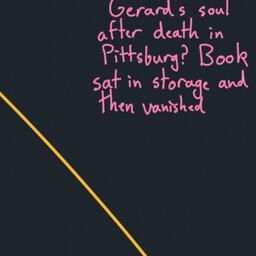 Gerard's soul
after death in
Pittsburg? Book
sat in storage and
then vanished